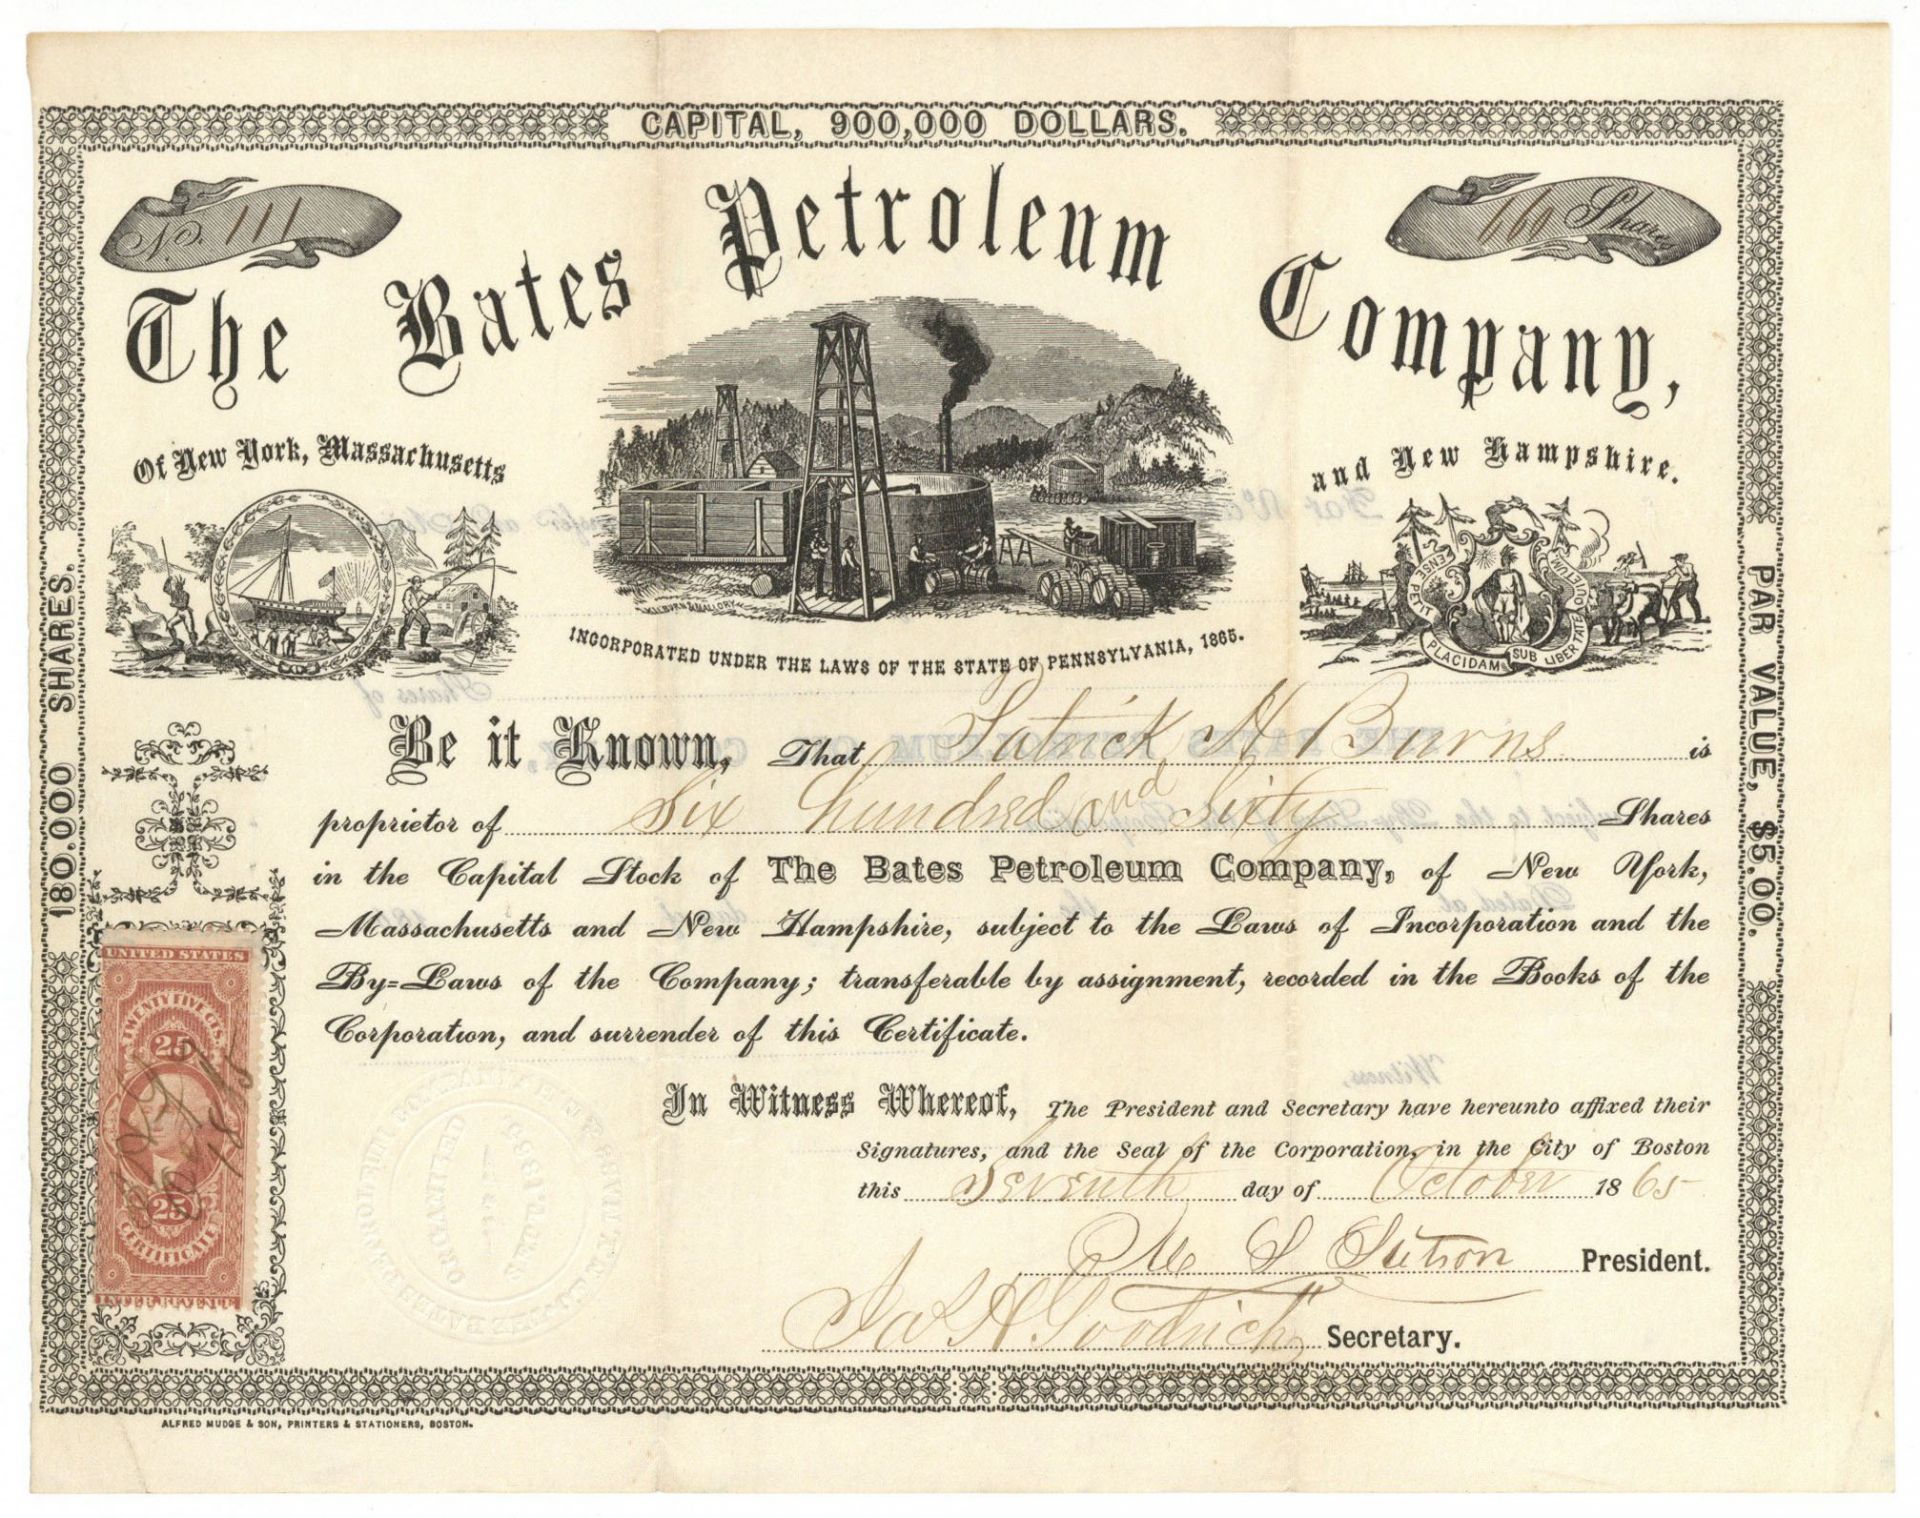 CAPITAL, 900,000 DOLLARS.
No. 111
660 Shares
The Bates Petroleum Company,
Of New York, Massachusetts
and New Hampshire.
KILBURN & MALLORY
INCORPORATED UNDER THE LAWS OF THE STATE OF PENNSYLVANIA, 1865.
ENSE PETIT PLACIDAM SUB LIBERTATE QUIETEM
180,000 SHARES.
PAR VALUE, $5.00.
Be it Known, That Patrick H Burns is
proprietor of Six hundred and Sixty Shares
in the Capital Stock of The Bates Petroleum Company, of New York,
Massachusetts and New Hampshire, subject to the Laws of Incorporation and the
By=Laws of the Company; transferable by assignment, recorded in the Books of the
Corporation, and surrender of this Certificate.
In Witness Whereof, The President and Secretary have hereunto affixed their
Signatures, and the Seal of the Corporation, in the City of Boston
this Seventh day of October 1865
S Stetson President.
H. Goodrich Secretary.
UNITED STATES
TWENTY FIVE CTS.
25
25
CERTIFICATE
INTER. REVENUE
ALFRED MUDGE & SON, PRINTERS & STATIONERS, BOSTON.